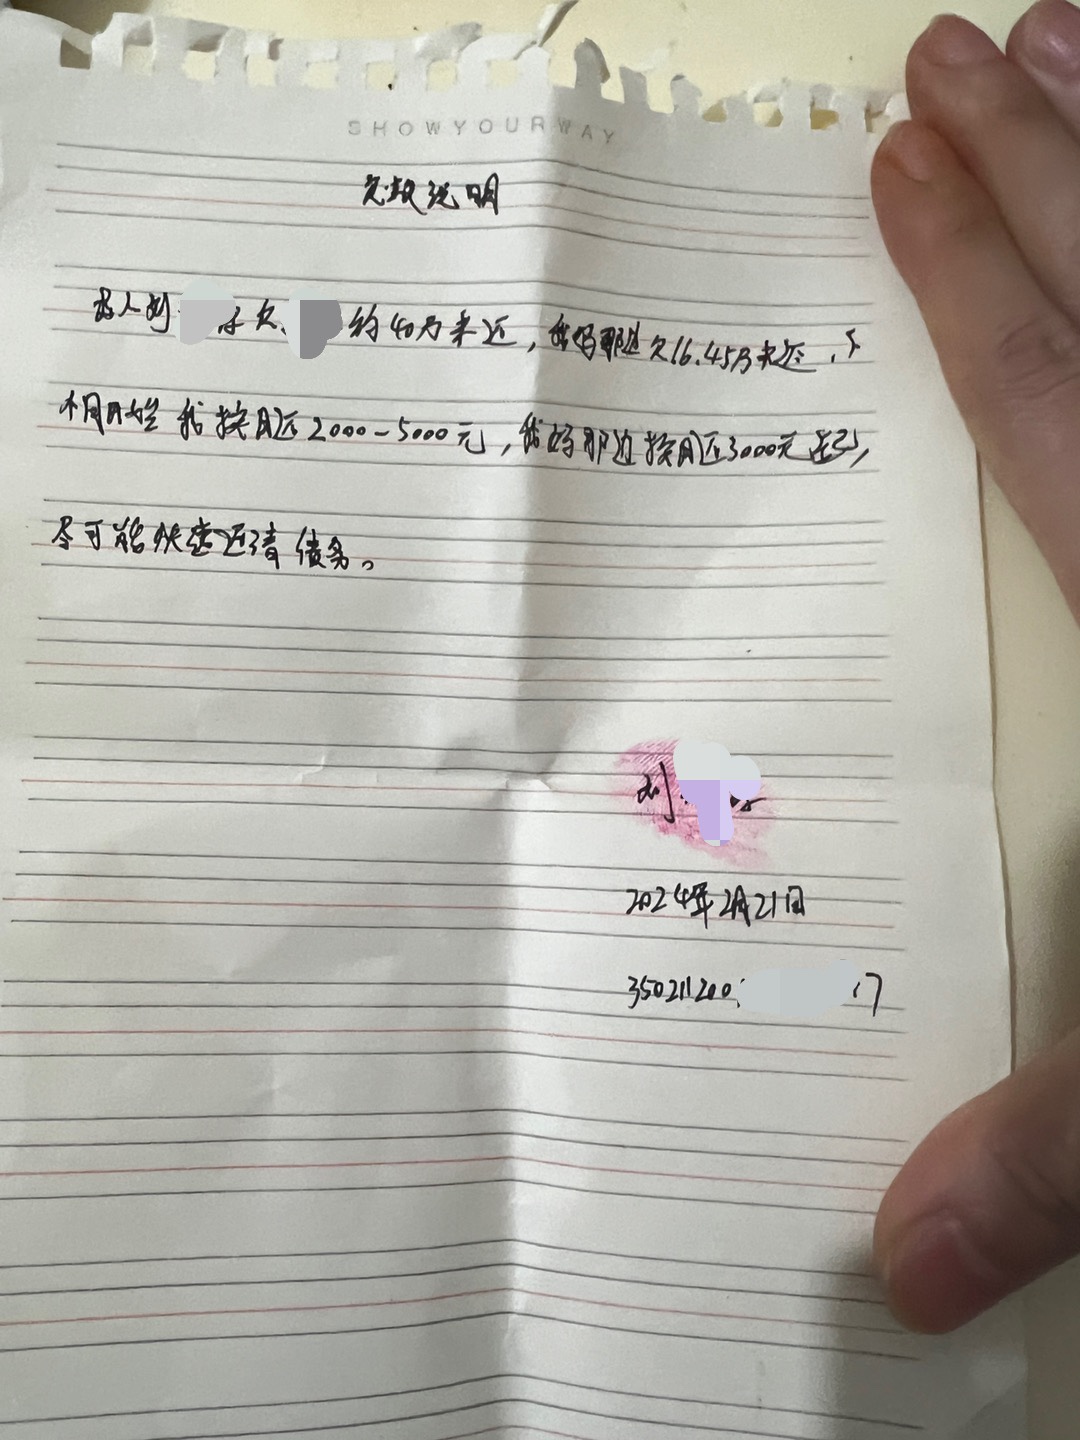 SHOWYOURWAY
欠款说明
本人刘 欠 约40万未还，我妈那边欠16.45万未还，下
个月开始 我按月还2000-5000元，我妈那边按月还3000元起，
尽可能快速还清债务。
刘
2024年2月21日
350211200 17